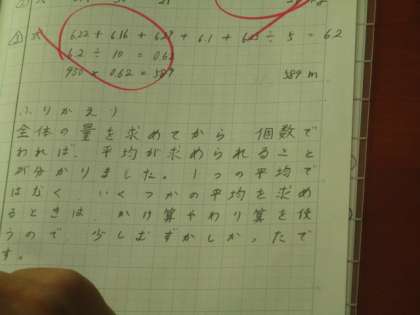 ② 式 6.22 + 6.16 + 6.27 + 6.1 + 6.25 ÷ 5 = 6.2
6.2 ÷ 10 = 0.62
950 × 0.62 = 589 589 m
ふりかえり
全体の量を求めてから 個数で
われば、平均が求められること
が分かりました。1つの平均で
はなく いくつかの平均を求め
るときは、かけ算やわり算を使
うので、少しむずかしかったで
す。